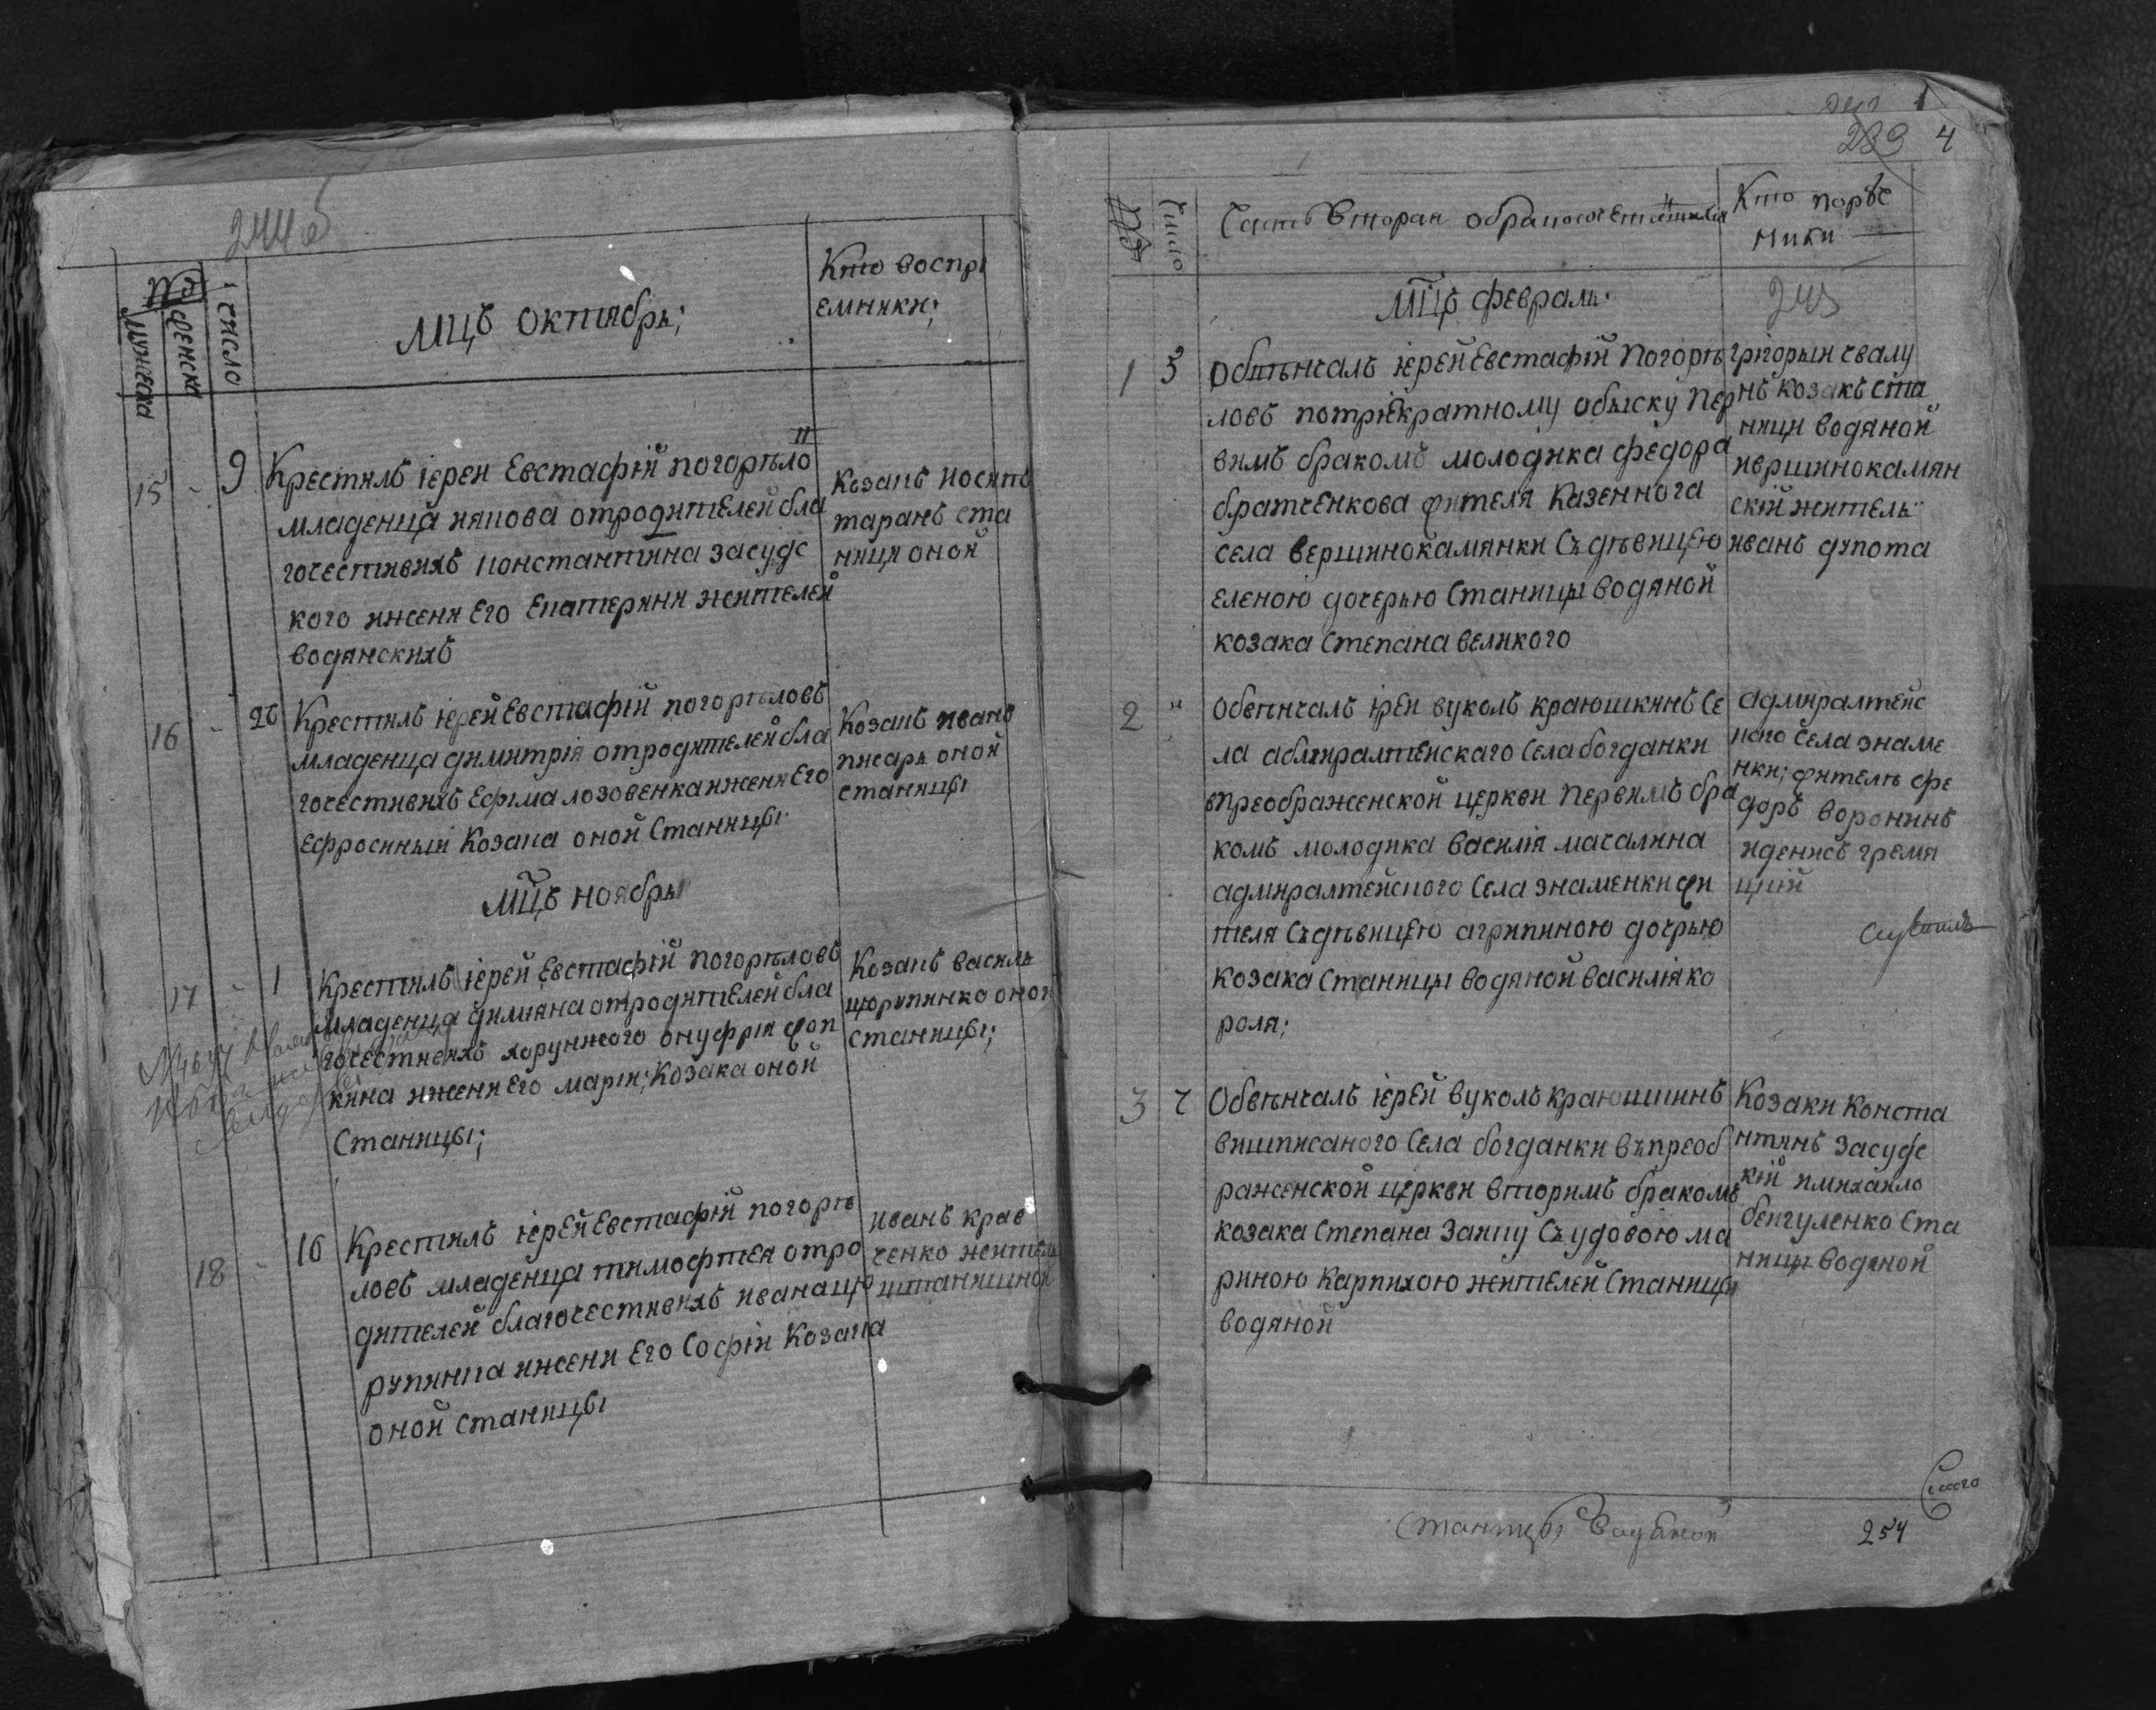 244 б
мужеска
женска
число
мцъ октябрь;
Кто воспрі
емники;
15 - 9 Крестилъ іерей Евстафій погорѣло
младенца іякова отродителей бла
гочестивихъ константина засудс
кого ижени Его Екатерини жителей
водянскихъ
Козакъ іосипъ
таранъ ста
ници оной
16 - 26 Крестилъ іерей Евстафій погорѣловъ
младенца димитрія отродителей бла
гочестивихъ Ефима лозовенка ижени Его
Ефросиныи Козака оной Станицы
Козакъ иванъ
писарь оной
станицы
мцъ ноябрь
17 - 1 Крестилъ іерей Евстафій погорѣловъ
младенца димияна отродителей бла
гочестивихъ хорунжого онуфрія фоп
кина ижени Его марiи; Козака оной
Станицы;
Козакъ василь
щорупинко оной
станицы;
18 - 16 Крестилъ іерей Евстафій погорѣ
ловъ младенца тимофтея отро
дителей благочестивихъ ивана що
рупинка ижени Его Софіи Козака
оной станицы
иванъ крав
ченко житель
239 4
число
Часть вторая
Кто порѣс
ники
мцъ февраль
243
1 3 Обвѣнчалъ іерей Евстафій Погорѣ
ловъ потриекратному обыску Пер
вимъ бракомъ молодика федора
братченкова жителя Казеннога
села вершинокамянки Съдѣвицею
еленою дочерью Станицы водяной
козака Степана великого
Григорыи чвалу
нъ козакъ Ста
ници водяной
ивершинокамян
скій житель
иванъ дупота
2 " Обвѣнчалъ іреи вуколъ краюшкинъ Се
ла адмиралтейскаго Села богданки
впреображенской церкви Первимъ бра
комъ молодика василія масалина
адмиралтейского Села знаменки жи
теля Съдѣвицею агрипиною дочрью
козака Станицы водяной василія ко
роля;
Адмиралтейс
кого Села знаме
нки; жителѣ фе
доръ воронинъ
иденисъ гремя
цкій
3 7 Обвѣнчалъ іерей вуколъ краюшкинъ
вишписаного Села богданки въпреоб
раженской церкви вторимъ бракомъ
козака Степана Заику Съудовою ма
риною Карпихою жителей Станицы
водяной
Козаки Конста
нтинъ засудс
кій имихаило
бенгуленко Ста
ницы водяной
Станицы Водяной
254